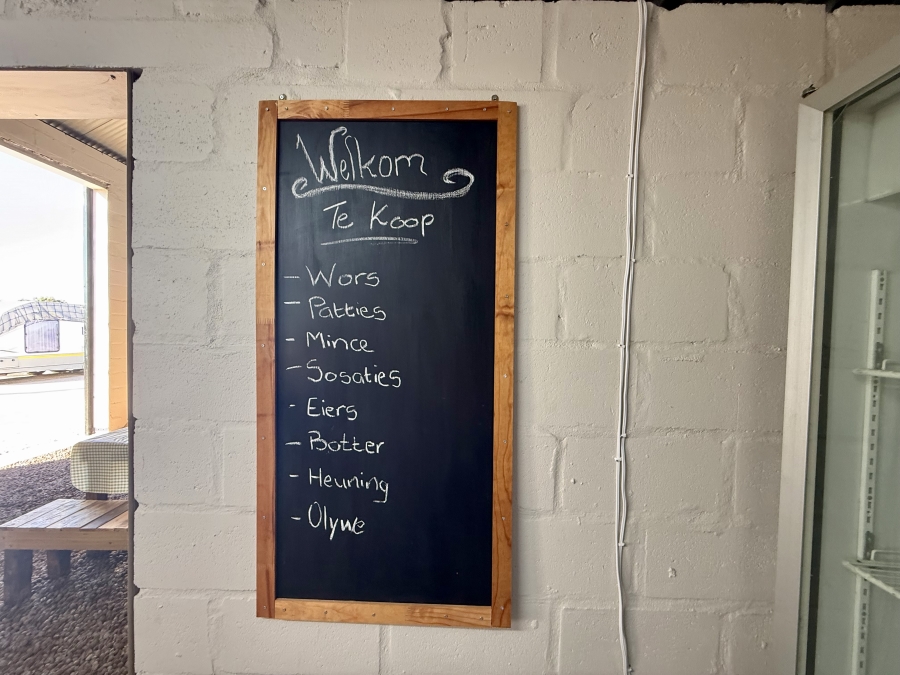 Welkom
Te Koop
- Wors
- Patties
- Mince
- Sosaties
- Eiers
- Botter
- Heuning
- Olywe